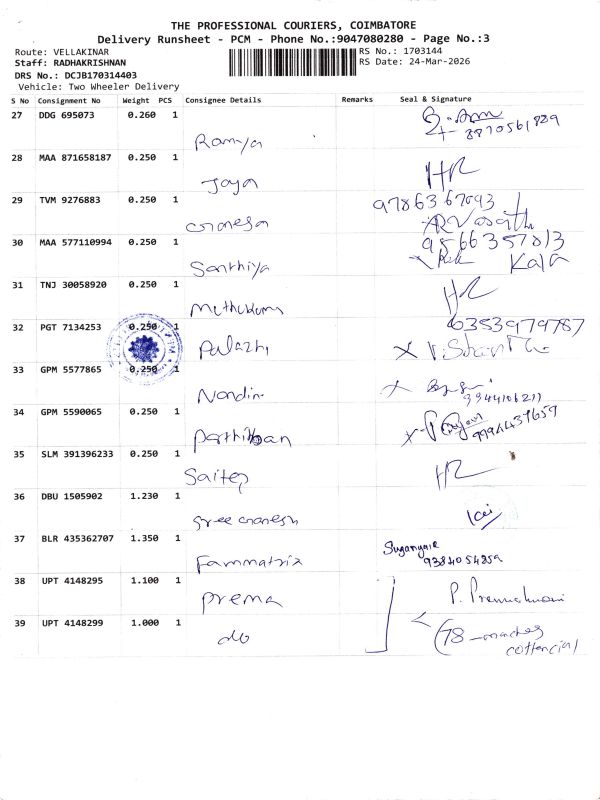 THE PROFESSIONAL COURIERS, COIMBATORE
Delivery Runsheet - PCM - Phone No.:9047080280 - Page No.:3
Route: VELLAKINAR RS No.: 1703144
Staff: RADHAKRISHNAN RS Date: 24-Mar-2026
DRS No.: DCJB170314403
Vehicle: Two Wheeler Delivery
S No Consignment No Weight PCS Consignee Details Remarks Seal & Signature
27 DDG 695073 0.260 1
Ramya
28 MAA 871658187 0.250 1
Jaya HR
29 TVM 9276883 0.250 1 9786367093
Ganesa
30 MAA 577110994 0.250 1 9566357813
Santhiya Kala
31 TNJ 30058920 0.250 1
HR
32 PGT 7134253 0.250 1 6353979787
Palazhi
33 GPM 5577865 0.250 1
Nandin 9944106211
34 GPM 5590065 0.250 1
Parthiban 9994437659
35 SLM 391396233 0.250 1
HR
36 DBU 1505902 1.230 1
Sree Ganesh
37 BLR 435362707 1.350 1
Fammatrix 9384054859
38 UPT 4148295 1.100 1
Prema P.
39 UPT 4148299 1.000 1
do (78